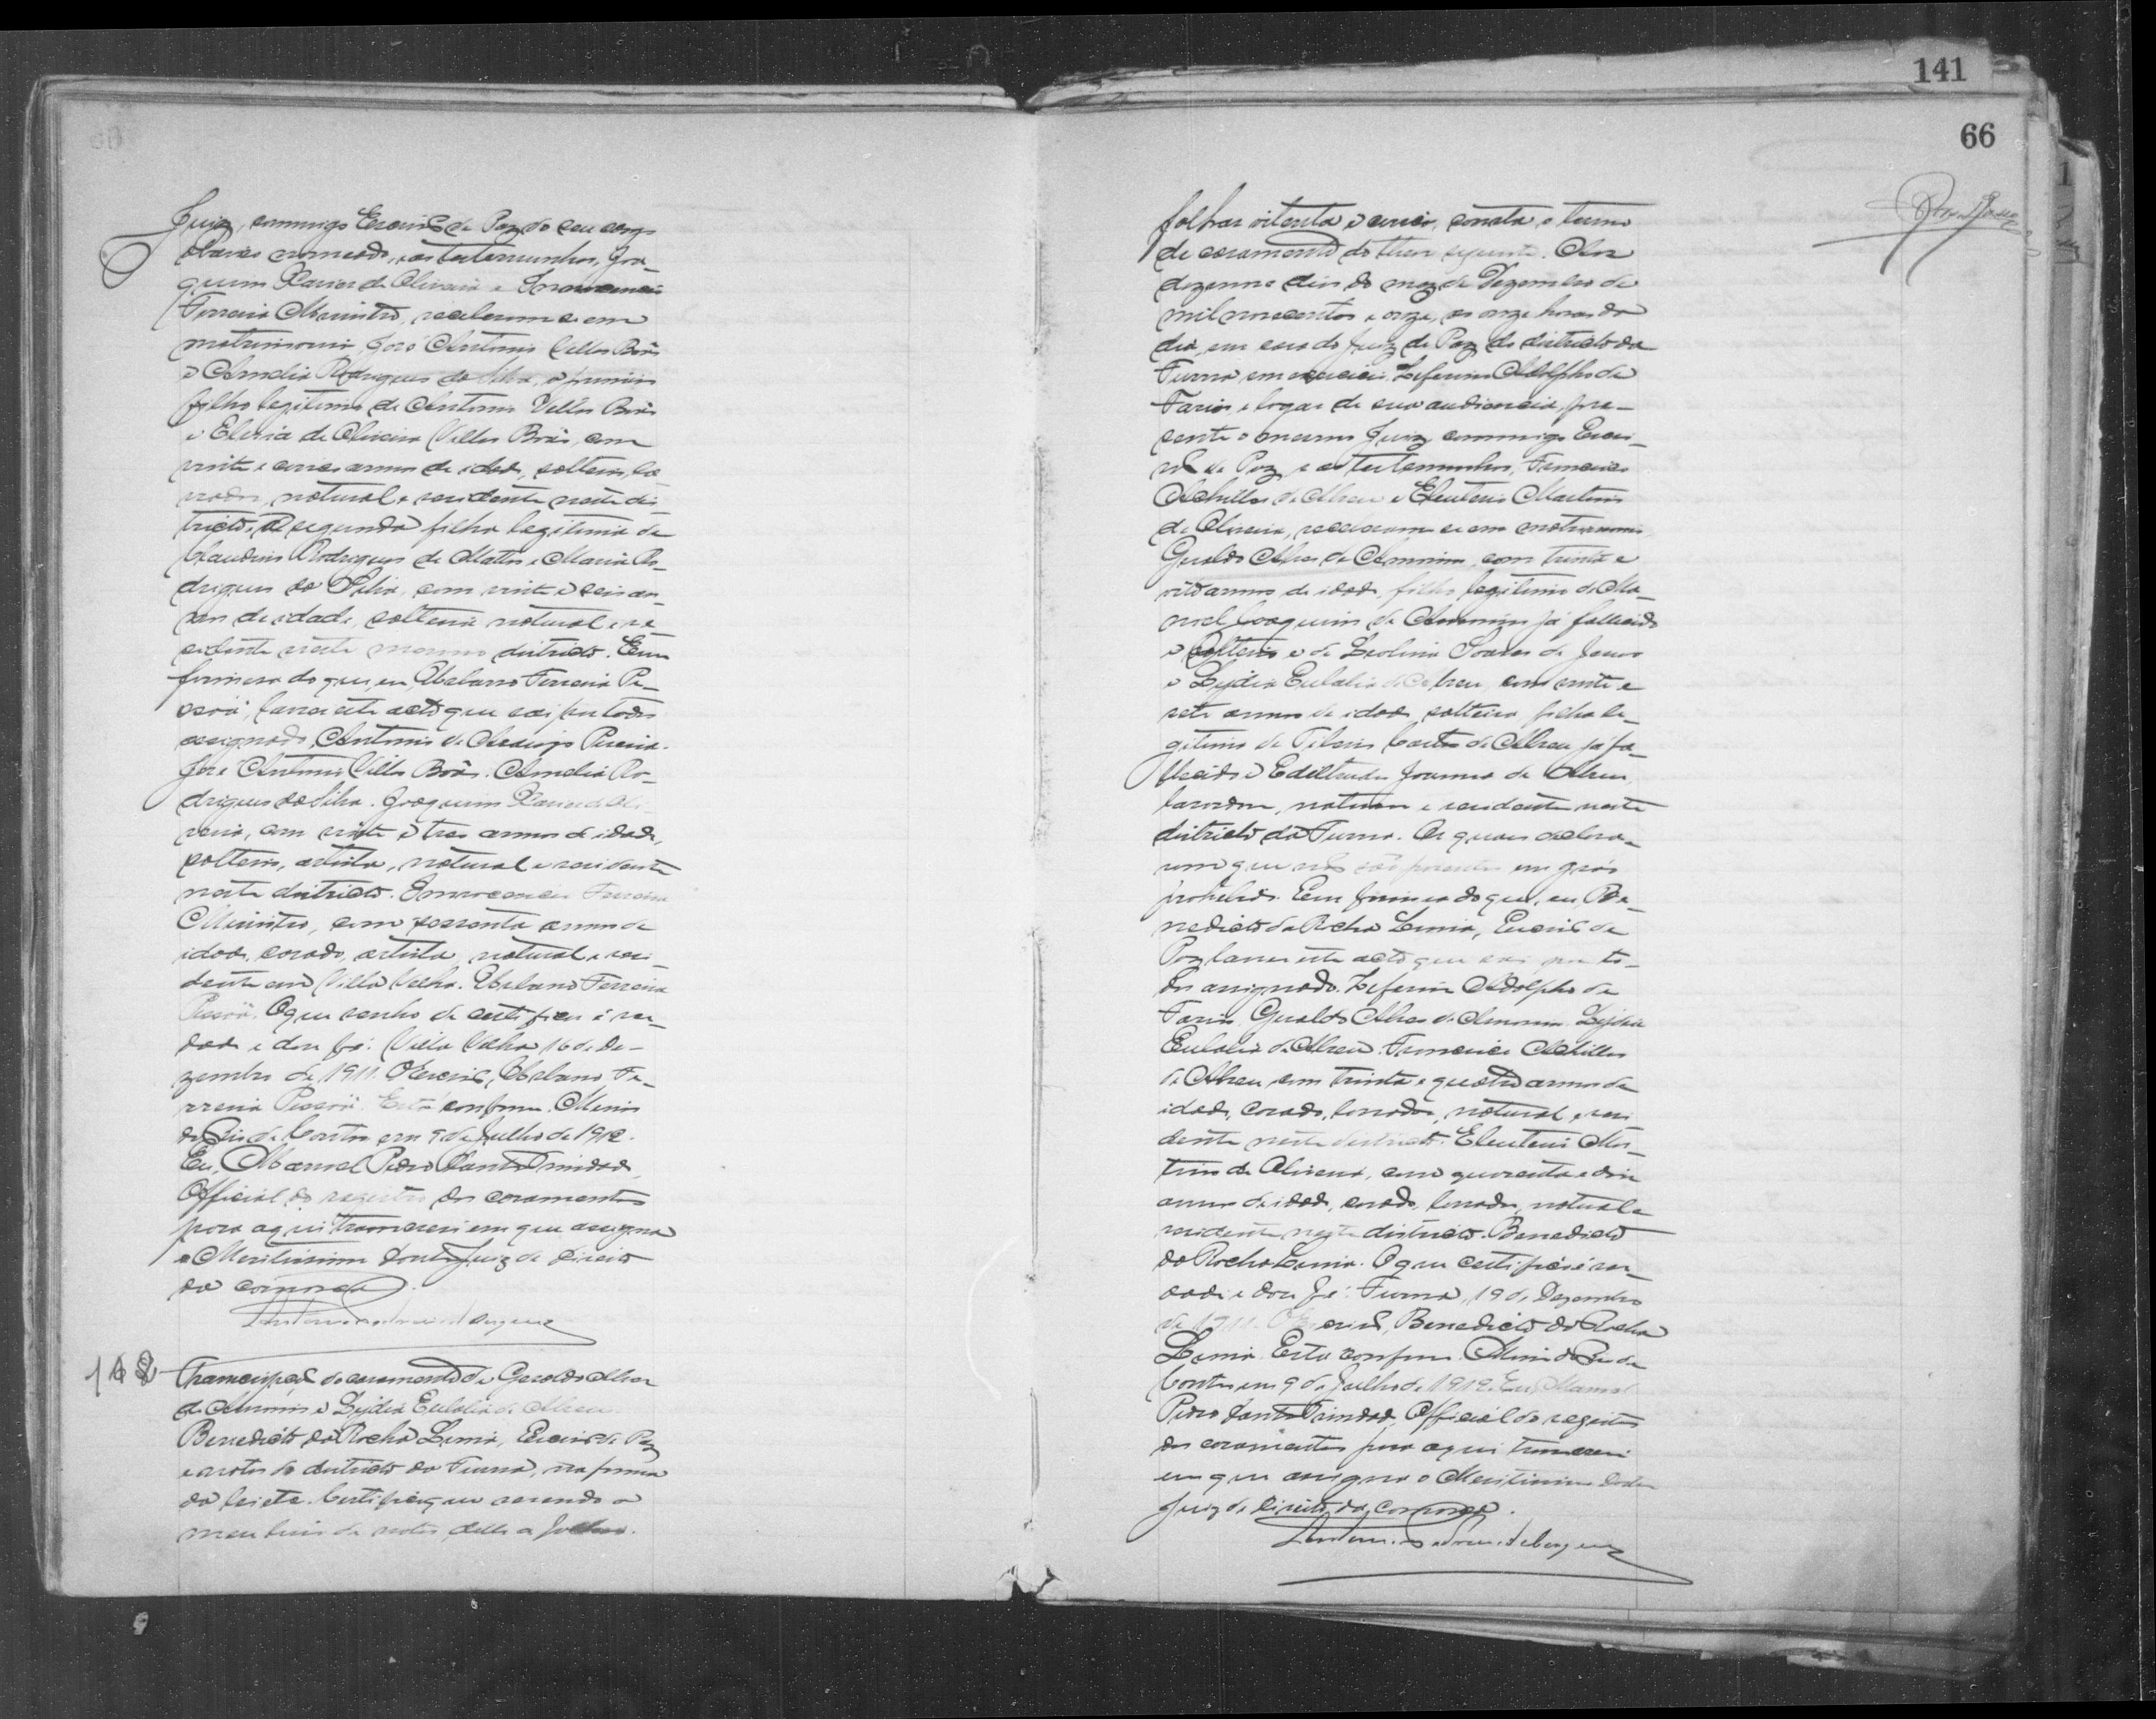 Juiz, commigo Escrivão de Paz do seu cargo
abaixo nomeado, e as testemunhas, Joa-
quim Xavier de Oliveira e Innocencio
Ferreira Ministro, receberam-se em
matrimonio, José Antonio Villas Bôas
e Amelia Rodrigues da Silva, o primeiro
filho legitimo de Antonio Villas Bôas
e Eleria de Oliveira Villas Bôas, com
vinte e cinco annos de idade, solteiro, la
vrador, natural e residente neste dis
tricto, a segunda filha legitima de
Claudino Rodrigues de Mattos e Maria Ro-
drigues da Silva, com vinte e seis an-
nos de idade, solteira natural e re-
sidente neste mesmo districto. Em
firmeza do que, eu, Urbano Ferreira Pe-
ssoa, lavrei este acto que vai por todos
assignado, Antonio de Araujo Pereira.
José Antonio Villas Bôas. Amelia Ro-
drigues da Silva. Joaquim Xavier de Oli
veira, com vinte e tres annos de idade,
solteiro, artista, natural e residente
neste districto. Innocencio Ferreira
Ministro, com sessenta annos de
idade, casado, artista, natural e resi-
dente em Villa Velha. Urbano Ferreira
Pessoa. O que venho de certificar é ver-
dade e dou fé. Villa Velha 16 de De-
zembro de 1911. O Escrivão, Urbano Fe-
rreira Pessoa. Está conforme. Minas
do Rio de Contas em 9 de Julho de 1912.
Eu, Manoel Pedro Santa Trindade,
Official do registro dos casamentos
para aqui transcrevi em que assigna
o Meritissimo Doutor Juiz de Direito
da comarca.
148 Transcripção do casamento de Geraldo Alves
de Amorim e Lydia Eulalia de Abreu.
Benedicto da Rocha Lima, Escrivão de Paz
e notas do districto da Furna, na forma
da lei etc. Certifico que revendo o
meu livro de notas, delle a folhas.
141
66
folhas oitenta e cinco, consta o termo
de casamento do theor seguinte. Aos
dezenove dias do mez de Dezembro de
mil novecentos e onze, as onze horas do
dia, em casa do Juiz de Paz do districto da
Furna em exercicio Zeferino Adolpho de
Farias e logar de sua audiencia, pre-
sente o mesmo Juiz commigo Escri-
vão de Paz e as testemunhas, Francisco
Achilles de Abreu e Eleuterio Martins
de Oliveira, receberam-se em matrimonio
Geraldo Alves de Amorim, com trinta e
oito annos de idade, filho legitimo de Ma-
noel Joaquim de Amorim já fallecido
e solteiro e de Leolina Soares de Jesus
e Lydia Eulalia de Abreu, com vinte e
sete annos de idade solteira filha le-
gitima de Tiberio Castro de Abreu já fa-
llecido e Ediltrudes Joanna de Abreu
lavradora, naturaes e residentes neste
districto da Furna. Os quaes declara-
ram que não são parentes em gráo
prohibido. Em firmeza do que, eu, Be-
nedicto da Rocha Lima, Escrivão de
Paz lavrei este acto que vai por to-
dos assignado. Zeferino Adolpho de
Farias. Geraldo Alves de Amorim. Lydia
Eulalia de Abreu. Francisco Achilles
de Abreu, com trinta e quatro annos de
idade, casado, lavrador, natural e resi
dente neste districto. Eleuterio Mar-
tins de Oliveira, com quarenta e dois
annos de idade, casado, lavrador, natural e
residente neste districto. Benedicto
da Rocha Lima. O que certifico é ver-
dade e dou fé. Furna, 19 de Dezembro
de 1911. O Escrivão, Benedicto da Rocha
Lima. Está conforme. Minas do Rio de
Contas em 9 de Julho de 1912. Eu, Manoel
Pedro Santa Trindade, Official do registro
dos casamentos para aqui transcrevi
em que assigna o Meritissimo Doutor
Juiz de Direito da comarca.